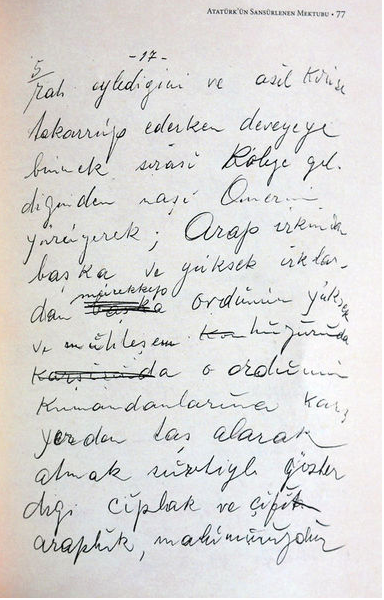 ATATÜRK'ÜN SANSÜRLENEN MEKTUBU • 77
-17-
5
rah eylediğini ve asil Kudüse
takarrüp ederken deveyeye
binmek sırası Köleye gel-
diğinden naşi Ömerin
yürüyerek; Arap ırkından
başka ve yüksek ırklar-
mürekkep
dan başka ordünün yüksek
ve mühteşem huzurunda
karşısında o ordünün
Kumandanlarına karşı
yerden taş alarak
atmak suretiyle göster
diği çıplak ve çifit
araplık,